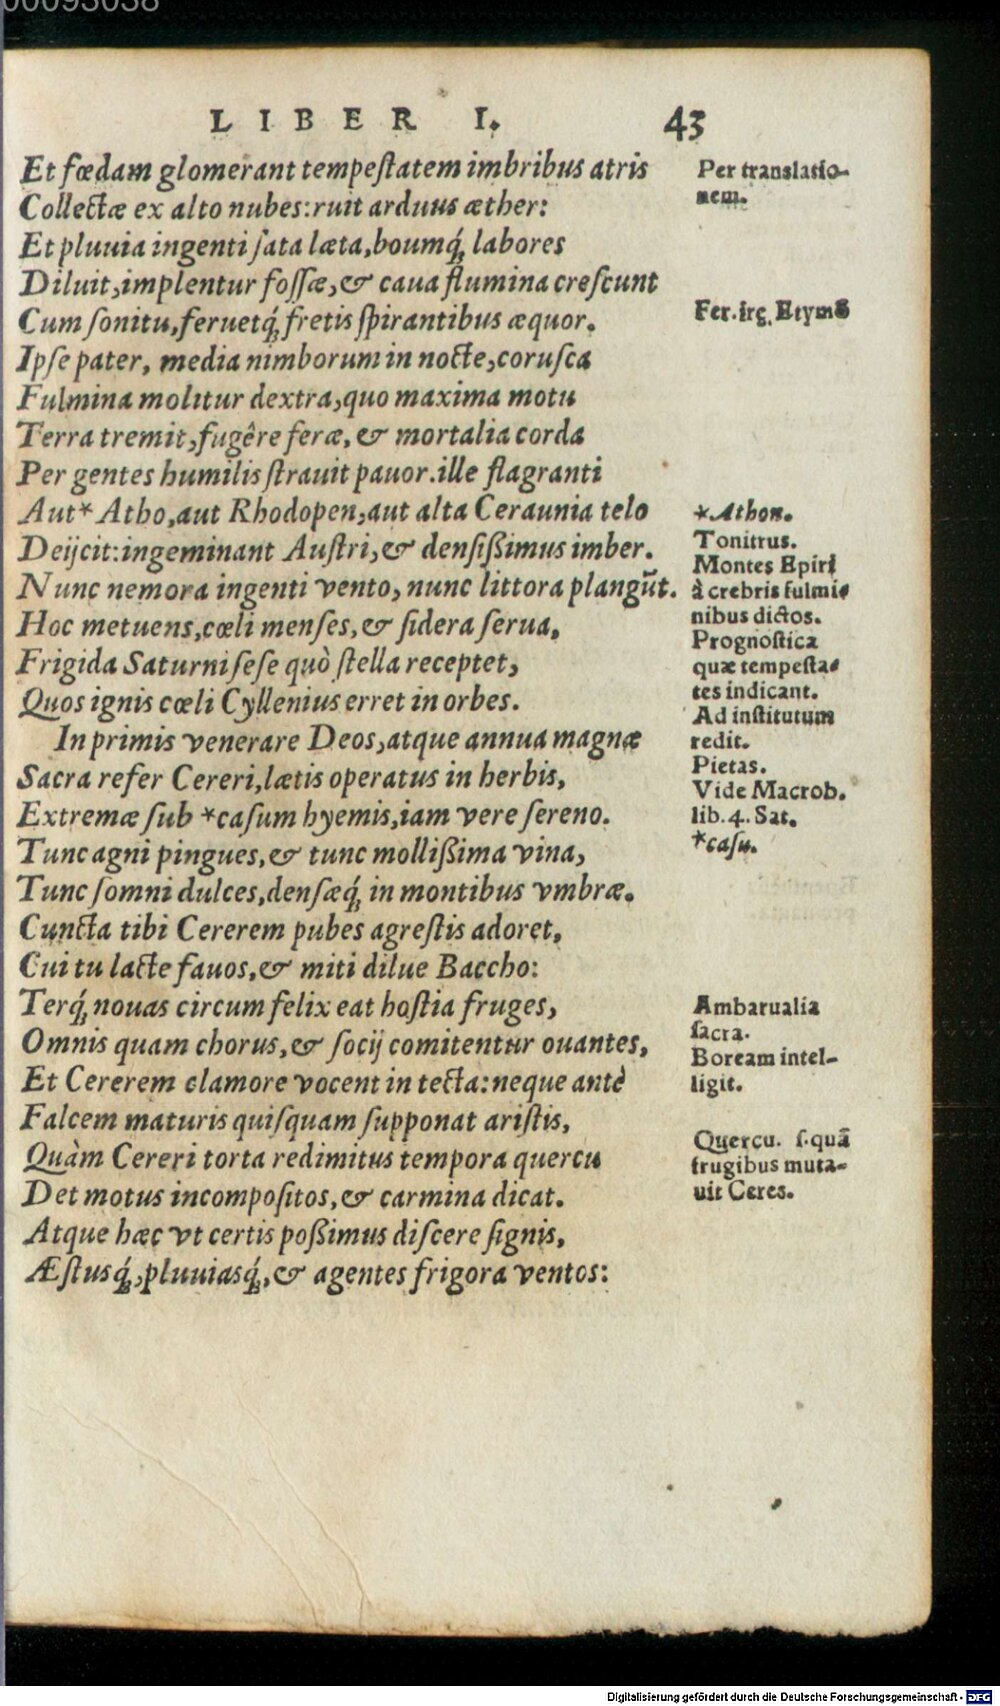 00093038
LIBER I. 43
Et fœdam glomerant tempeſtatem imbribus atris
Collectæ ex alto nubes: ruit arduus æther:
Et pluuia ingenti ſata læta, boumq́ꝫ labores
Diluit, implentur foſſæ, & caua flumina creſcunt
Cum ſonitu, feruetq́ꝫ fretis ſpirantibus æquor.
Ipſe pater, media nimborum in nocte, coruſca
Fulmina molitur dextra, quo maxima motu
Terra tremit, fugêre feræ, & mortalia corda
Per gentes humilis ſtrauit pauor. ille flagranti
Aut* Atho, aut Rhodopen, aut alta Ceraunia telo
Deijcit: ingeminant Auſtri, & denſißimus imber.
Nunc nemora ingenti vento, nunc littora plangūt.
Hoc metuens, cœli menſes, & ſidera ſerua,
Frigida Saturni ſeſe quò ſtella receptet,
Quos ignis cœli Cyllenius erret in orbes.
In primis venerare Deos, atque annua magnæ
Sacra refer Cereri, lætis operatus in herbis,
Extremæ ſub *caſum hyemis, iam vere ſereno.
Tunc agni pingues, & tunc mollißima vina,
Tunc ſomni dulces, denſæq́ꝫ in montibus vmbræ.
Cuncta tibi Cererem pubes agreſtis adoret,
Cui tu lacte fauos, & miti dilue Baccho:
Terq́ꝫ nouas circum felix eat hoſtia fruges,
Omnis quam chorus, & ſocij comitentur ouantes,
Et Cererem clamore vocent in tecta: neque antè
Falcem maturis quiſquam ſupponat ariſtis,
Quàm Cereri torta redimitus tempora quercu
Det motus incompoſitos, & carmina dicat.
Atque hæc vt certis poßimus diſcere ſignis,
Æſtusq́ꝫ, pluuiasq́ꝫ, & agentes frigora ventos:
Per translatio-
nem.
*Athon.
Tonitrus.
Montes Epiri
à crebris fulmi-
nibus dictos.
Prognoſtica
quæ tempeſta-
tes indicant.
Ad inſtitutum
redit.
Pietas.
Vide Macrob.
lib. 4. Sat.
*caſu.
Ambarualia
ſacra.
Boream intel-
ligit.
Quercu. ſ. quā
frugibus muta-
uit Ceres.
Digitalisierung gefördert durch die Deutsche Forschungsgemeinschaft - DFG